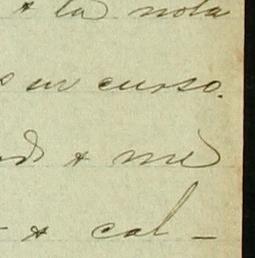 á la nota
en curso.
á me
á cal-